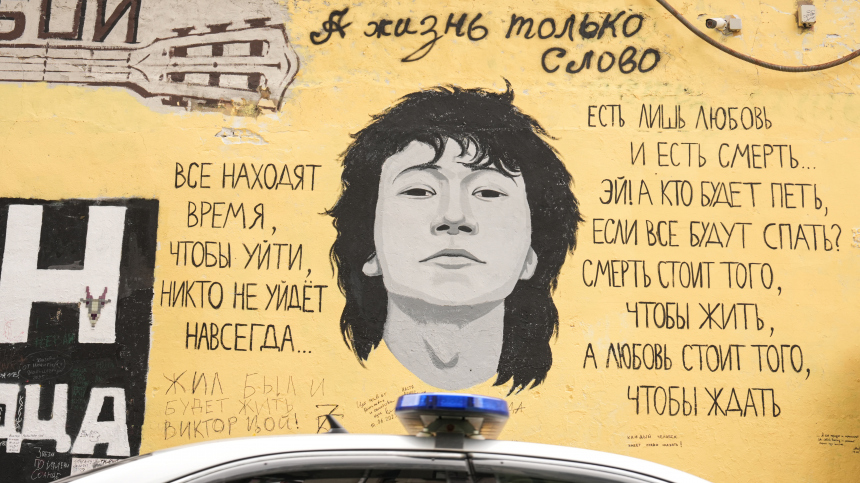 А жизнь только
слово
ВСЕ НАХОДЯТ
ВРЕМЯ,
ЧТОБЫ УЙТИ,
НИКТО НЕ УЙДЁТ
НАВСЕГДА...
ЕСТЬ ЛИШЬ ЛЮБОВЬ
И ЕСТЬ СМЕРТЬ...
ЭЙ! А КТО БУДЕТ ПЕТЬ,
ЕСЛИ ВСЕ БУДУТ СПАТЬ?
СМЕРТЬ СТОИТ ТОГО,
ЧТОБЫ ЖИТЬ,
А ЛЮБОВЬ СТОИТ ТОГО,
ЧТОБЫ ЖДАТЬ
Н
ЦА
ЖИЛ БЫЛ И
БУДЕТ ЖИТЬ
ВИКТОР ЦОЙ!